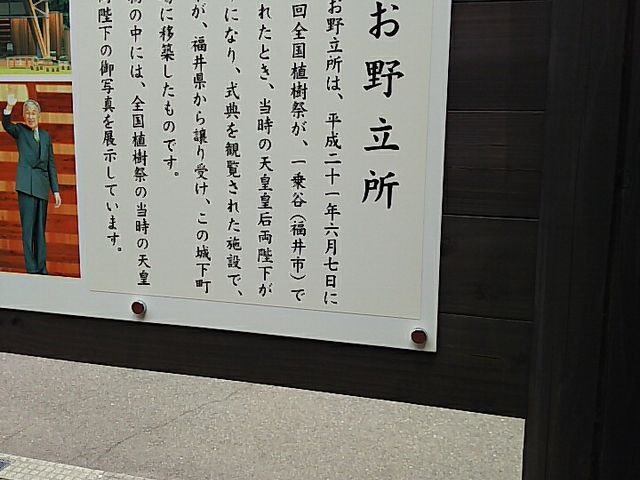 お野立所
お野立所は、平成二十一年六月七日に
回全国植樹祭が、一乗谷（福井市）で
れたとき、当時の天皇皇后両陛下が
になり、式典を観覧された施設で、
が、福井県から譲り受け、この城下町
に移築したものです。
の中には、全国植樹祭の当時の天皇
陛下の御写真を展示しています。